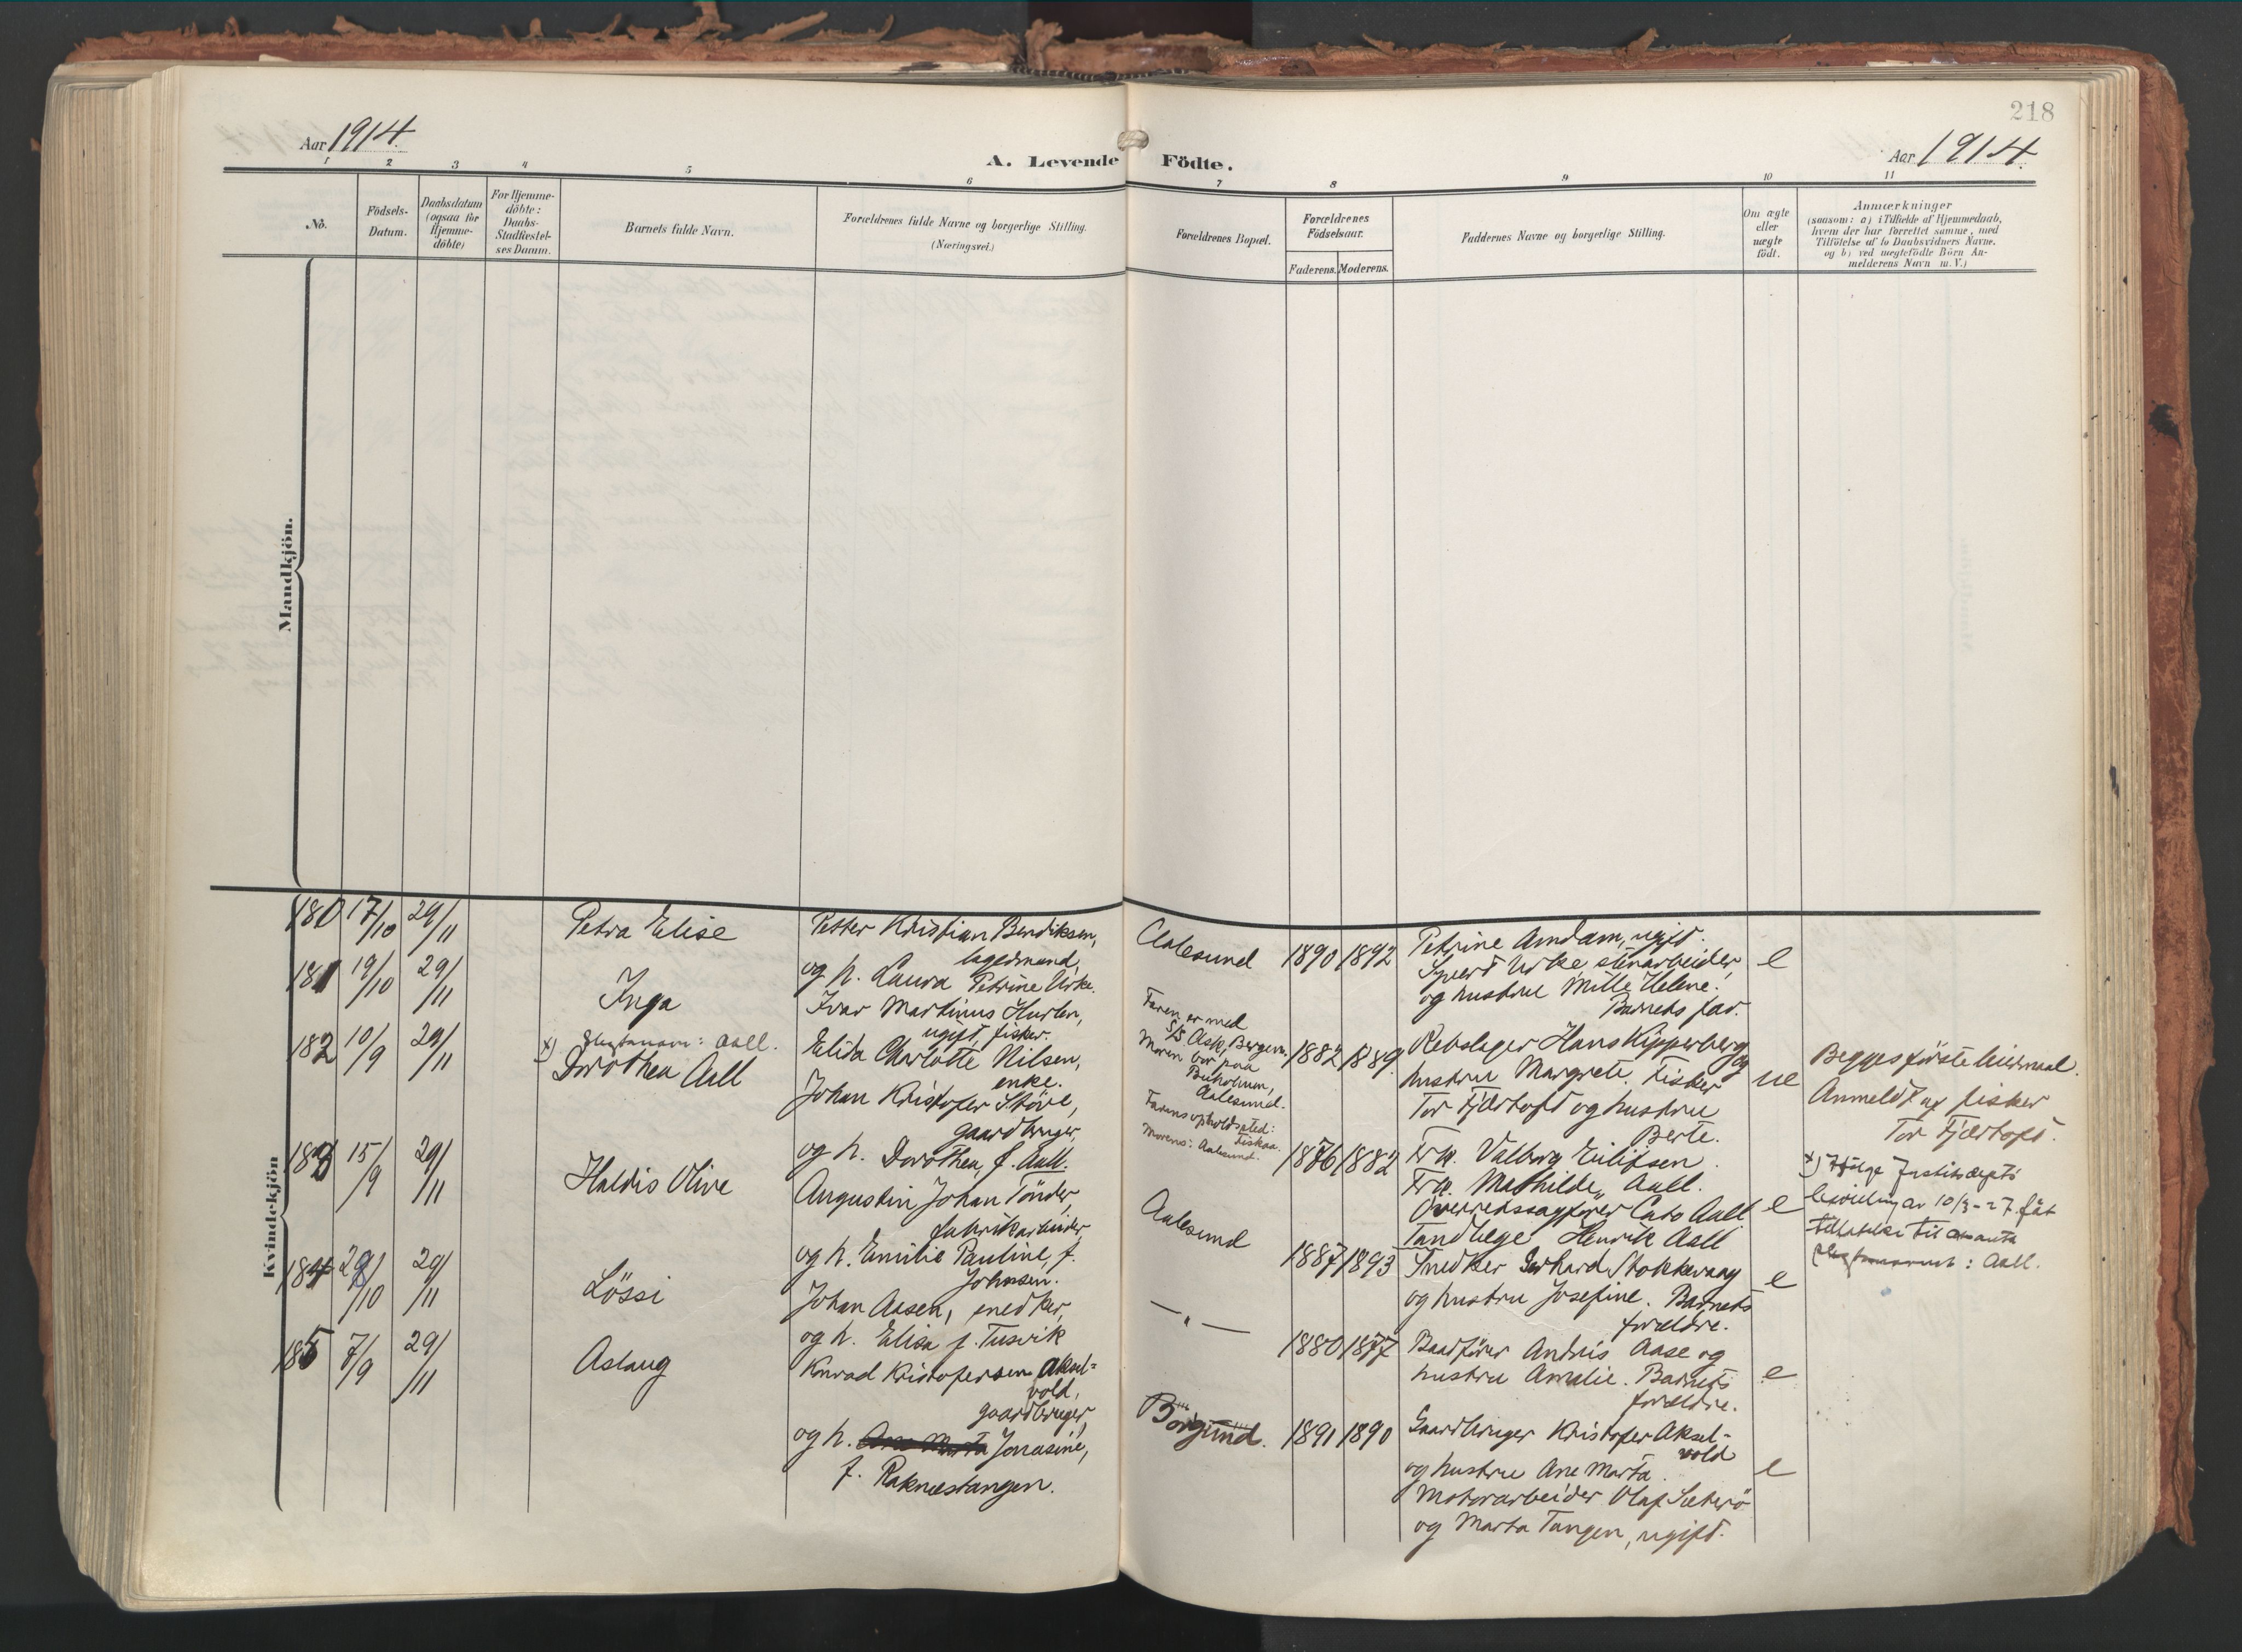 218
Aar 1914.
A. Levende Födte.
Aar 1914.
1 2 3 4 5 6 7 8 9 10 11
No.
Födsels-
Datum.
Daabsdatum
(ogsaa for
Hjemme-
döbte)
For Hjemme-
döbte:
Daabs-
Stadfæstel-
ses Datum.
Barnets fulde Navn.
Forældrenes fulde Navne og borgerlige Stilling.
(Næringsvei.)
Forældrenes Bopæl.
Forældrenes
Födselsaar.
Faderens. Moderens.
Faddernes Navne og borgerlige Stilling.
Om ægte
eller
uægte
födt.
Anmærkninger
(saasom: a) i Tilfælde af Hjemmedaab,
hvem der har forrettet samme, med
Tilföielse af to Daabsvidners Navne.
og b) ved uægtefödte Börn An-
melderens Navn m. V.)
Mandkjön.
Kvindekjön
180 17/10 29/11
Petra Elise
Petter Kristian Bendiksen,
lagermand,
og h. Laura Petrine Urke.
Aalesund
1890 1892
Petrine Amdam, ugift.
Sjurd Urke, stenarbeider,
og hustru Mille Helene.
Barnets far.
e
181 19/10 29/11
Inga
Ivar Martinus Hurlen,
ugift, fisker.
Elida Charlotte Nilsen,
enke.
Faren er med
S/S Ask, Bergen.
Moren bor paa
Buholmen,
Aalesund.
1882 1889
Rebslager Hans Kipperberg og
hustru Margrete. Fisker
Tor Fjærtoft og hustru
Berte.
ue
Begges første leiermaal.
Anmeldt af fisker
Tor Fjærtoft.
182 10/9 29/11
x) Slegtsnavn: Aall.
Dorothea Aall
Johan Kristofer Støve,
gaardbruger,
og h. Dorothea, f. Aall.
Farens opholdssted:
Liskaa.
Morens: Aalesund.
1876 1882
Frk. Valborg Eilifsen.
Frk. Mathilde Aall.
Overretssagfører Cato Aall
Tandlæge Henrik Aall
e
x) Ifølge Justitsdepts
bevilling av 10/3-27 fåt
tillatelse til at anta
slegtsnavnet: Aall.
183 15/9 29/11
Haldis Olive
Augustin Johan Tönder,
fabrikarbeider,
og h. Emilie Pauline, f.
Johnsen.
Aalesund
1887 1893
Snedker Gerhard Stokkevaag
og hustru Josefine. Barnets
forældre.
e
184 29/10 29/11
Lössi
Johan Aasen, snedker,
og h. Elisa f. Tusvik
— " —
1880 1877
Baadfører Andreas Aase og
hustru Amalie. Barnets
forældre.
e
185 7/9 29/11
Aslaug
Konrad Kristofersen Aksel-
vold,
gaardbruger,
og h. Ane Marta Jonasine,
f. Raknestangen.
Borgund.
1891 1890
Gaardbruger Kristofer Aksel-
vold
og hustru Ane Marta.
Motorarbeider Olaf Sæterö
og Marta Tangen, ugift.
e